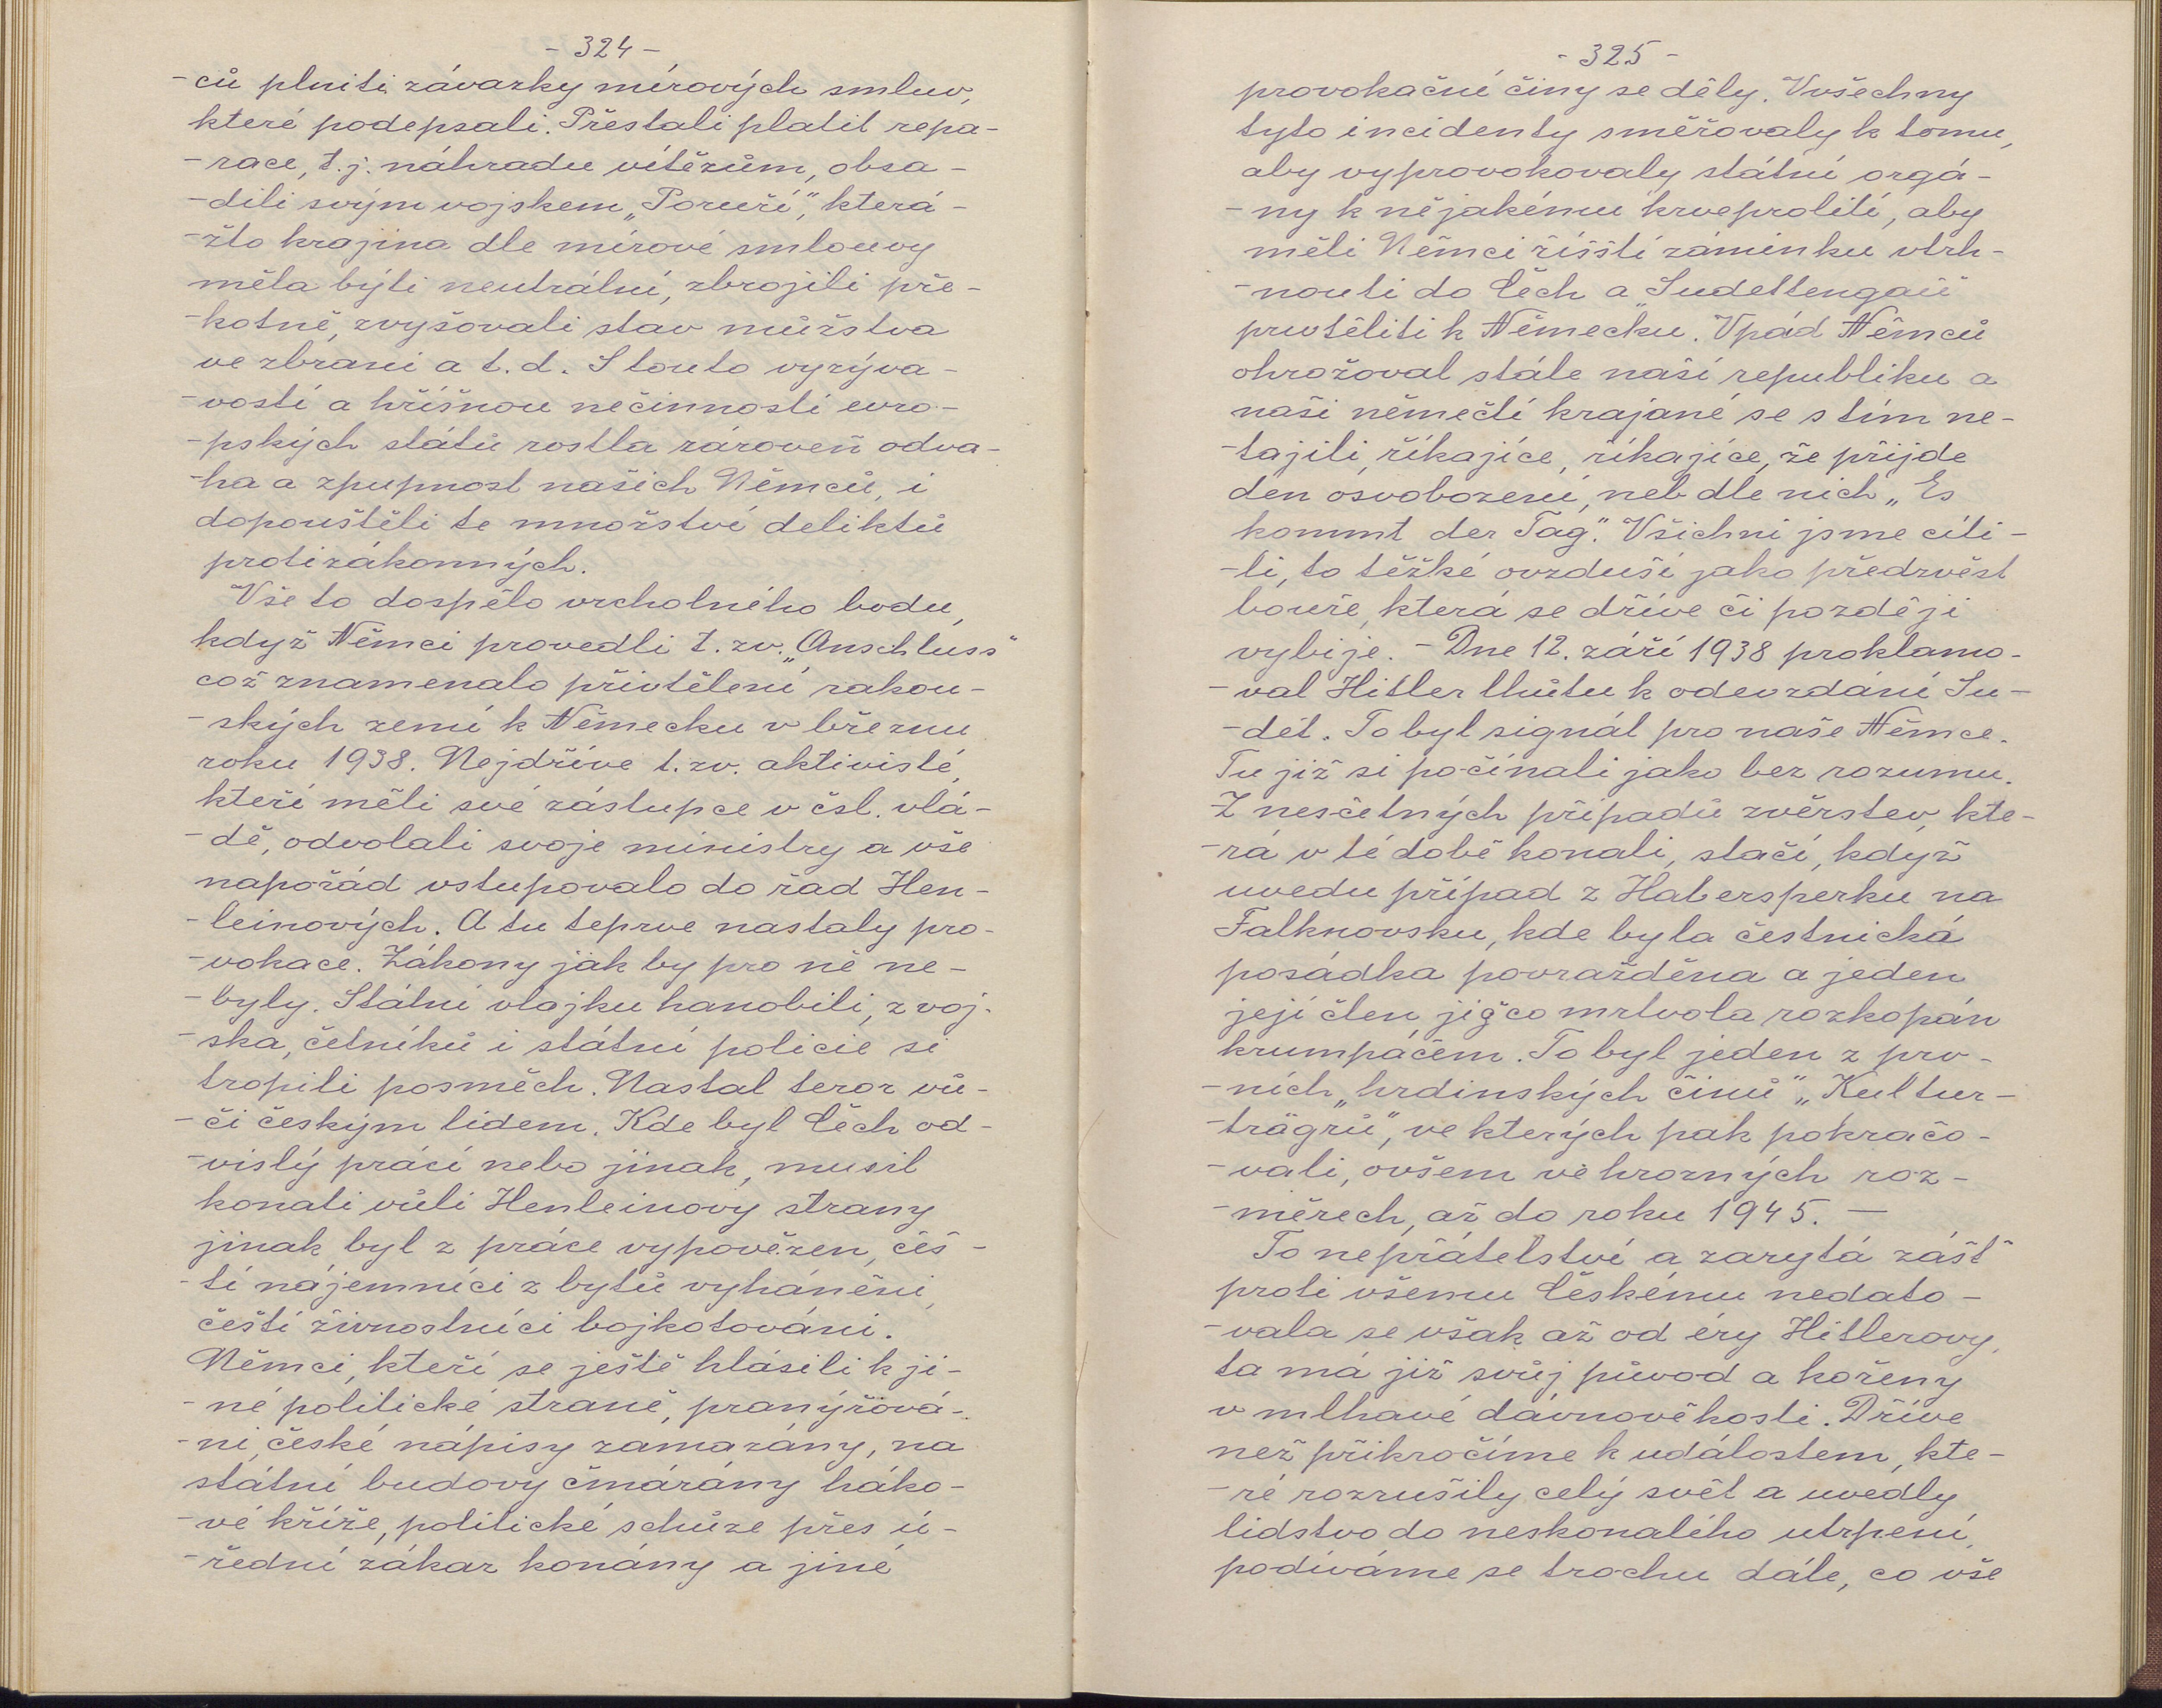 - 324 -
-ců plniti závazky mírových smluv,
které podepsali. Přestali platit repa-
-race, t.j. náhradu vítězům, obsa-
-dili svým vojskem „Poruří“, která-
-žto krajina dle mírové smlouvy
měla býti neutrální, zbrojili pře-
-kotně, zvyšovali stav mužstva
ve zbrani a t.d. S touto vyzýva-
-vostí a hříšnou nečinností evro-
-pských států rostla zároveň odva-
-ha a zpupnost našich Němců, i
dopouštěli te množství deliktů
protizákonných.
Vše to dospělo vrcholného bodu,
když Němci provedli t. zv. „Anschluss“
což znamenalo přivtělení rakou-
-ských zemí k Německu v březnu
roku 1938. Nejdříve t. zv. aktivisté,
kteří měli své zástupce v čsl. vlá-
-dě, odvolali svoje ministry a vše
napořád vstupovalo do řad Hen-
-leinových. A tu teprve nastaly pro-
-vokace. Zákony jak by pro ně ne-
-byly. Státní vlajku hanobili, z voj-
-ska, četníků i státní policie si
tropili posměch. Nastal teror vů-
-či českým lidem. Kde byl Čech od-
-vislý prácí nebo jinak, musil
konati vůli Henleinovy strany
jinak byl z práce vypovězen, češ-
-tí nájemníci z bytů vyháněni,
čeští živnostníci bojkotováni.
Němci, kteří se ještě hlásili k ji-
-né politické straně, pranýřová-
-ni, české nápisy zamazány, na
státní budovy čmárány háko-
-vé kříže, politické schůze přes ú-
-řední zákaz konány a jiné
- 325 -
provokační činy se děly. Vvšechny
tyto incidenty směřovaly k tomu,
aby vyprovokovaly státní orgá-
-ny k nějakému krveprolití, aby
měli Němci říšští záminku vtrh-
-nouti do Čech a „Sudettengaü“
prvtěliti k Německu. Vpád Němců
ohrožoval stále naší republiku a
naši němečtí krajané se s tím ne-
-tajili, říkajíce, říkajíce, že přijde
den osvobození, neb dle nich „Es
kommt der Tag“. Všichni jsme cíti-
-li, to těžké ovzduší jako předzvěst
bouře, která se dříve či později
vybije. - Dne 12. září 1938 proklamo-
-val Hitler lhůtu k odevzdání Su-
-dét. To byl signál pro naše Němce.
Tu již si počínali jako bez rozumu.
Z nesčetných případů zvěrstev, kte-
-rá v té době konali, stačí, když
uvedu případ z Habersperku na
Falknovsku, kde byla čestnická
posádka povražděna a jeden
její člen, již co mrtvola rozkopán
krumpáčem. To byl jeden z prv-
-ních „hrdinských činů“ „Kultur-
-trägrů“, ve kterých pak pokračo-
-vali, ovšem ve hrozných roz-
-měrech, až do roku 1945. —
To nepřátelství a zarytá zášť
proti všemu Českému nedato-
-vala se však až od éry Hitlerovy,
ta má již svůj původ a kořeny
v mlhavé dávnověkosti. Dříve
než přikročíme k událostem, kte-
-ré rozrušily celý svět a uvedly
lidstvo do neskonalého utrpení,
podíváme se trochu dále, co vše